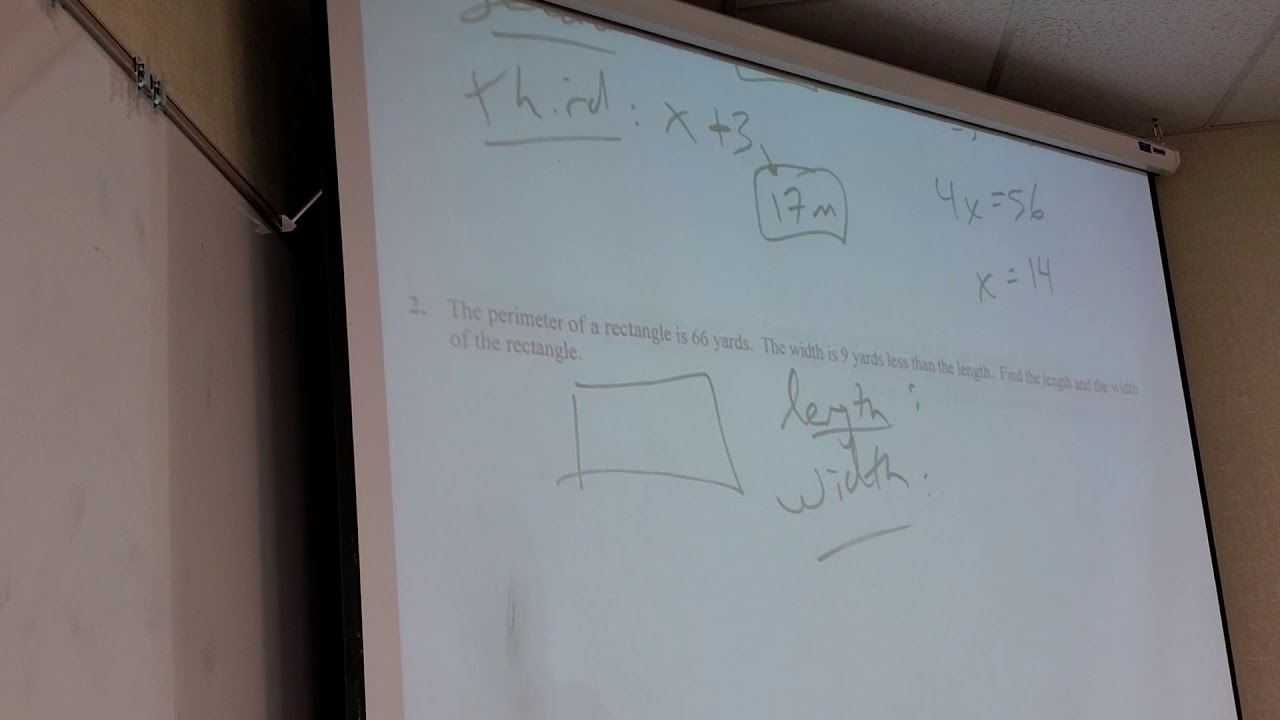 third: x+3
17m
4x=56
x=14
2. The perimeter of a rectangle is 66 yards. The width is 9 yards less than the length. Find the length and the width
of the rectangle.
length:
width: